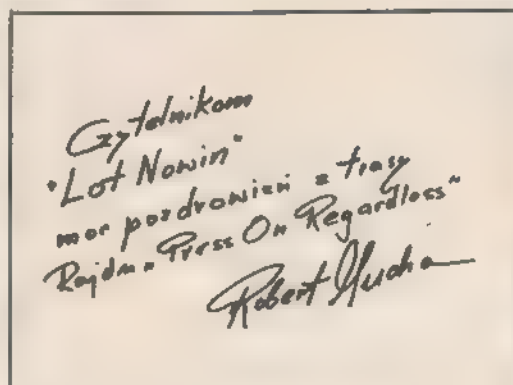 Czytelnikom
"Lot Nowin"
moc pozdrowień z trasy
Rajdu "Press On Regardless"
Robert Mucha